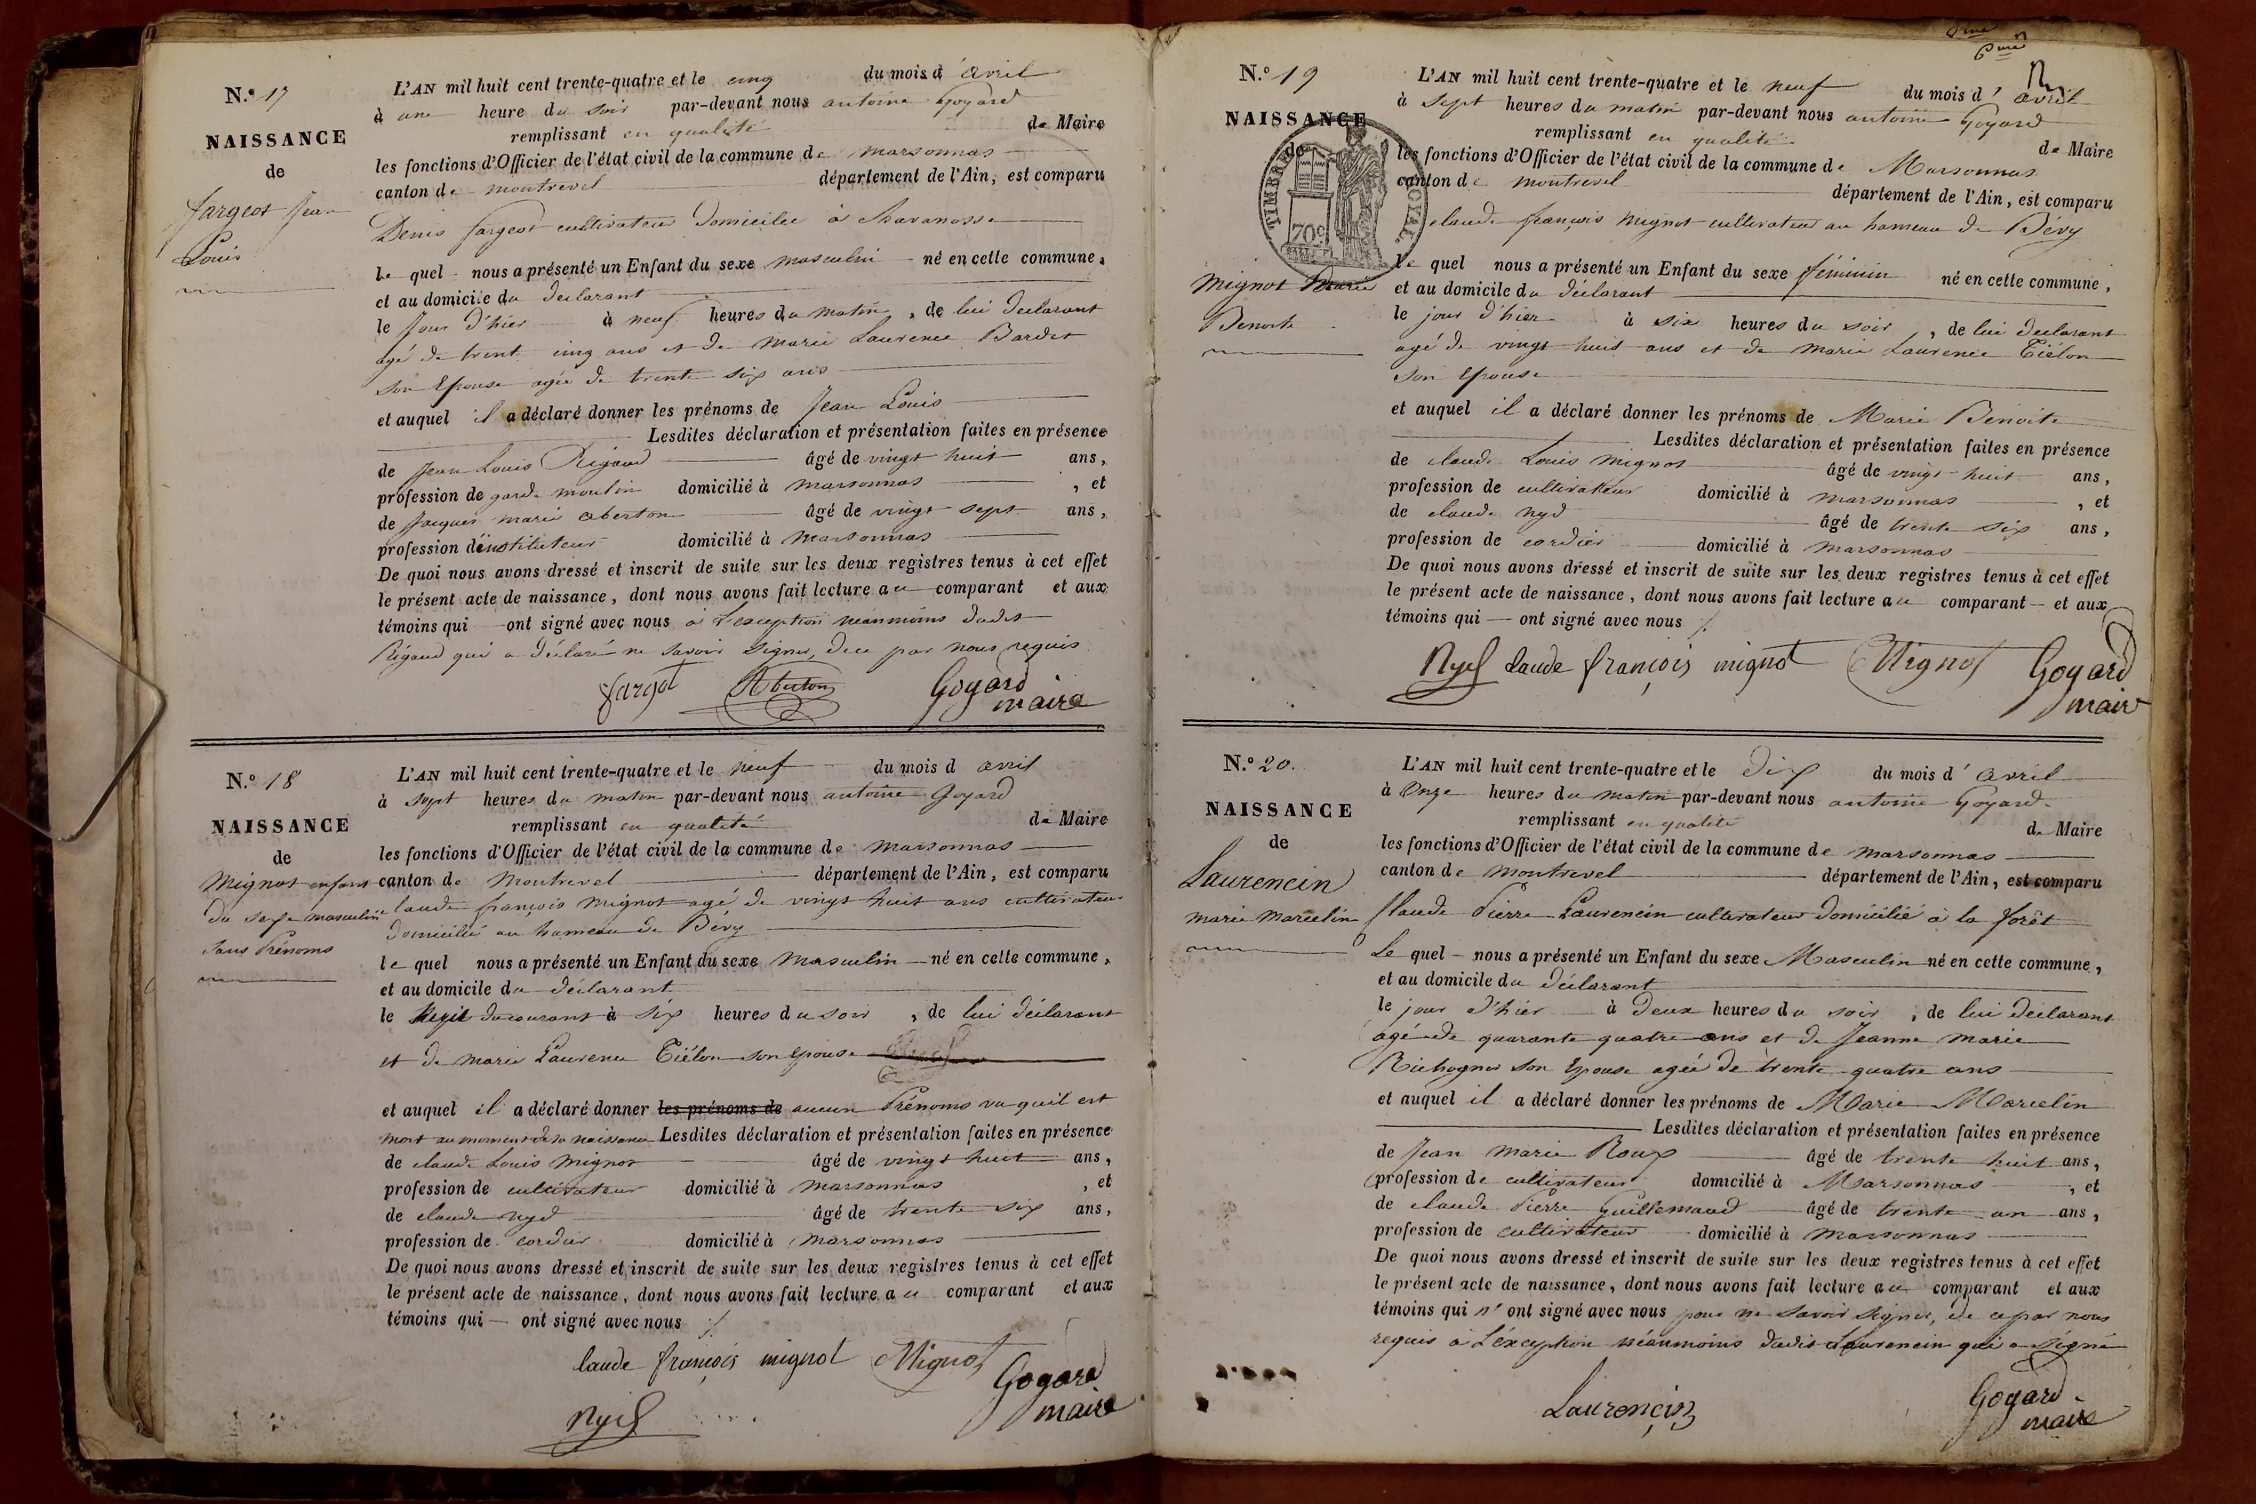 N.o 17
NAISSANCE
de
fargeot Jean
Louis
L'AN mil huit cent trente-quatre et le cinq du mois d'avril
à une heure du soir par-devant nous antoine Goyard
remplissant en qualité de Maire
les fonctions d'Officier de l'état civil de la commune de marsonnas
canton de montrevel département de l'Ain, est comparu
Denis fargeot cultivateur domicilié à
le quel nous a présenté un Enfant du sexe masculin né en cette commune,
et au domicile du declarant
le jour d'hier à neuf heures du matin, de lui declarant
agé de trente cinq ans et de marie Laurence Bardet
son Epouse agée de trente six ans
et auquel il a déclaré donner les prénoms de Jean Louis
Lesdites déclaration et présentation faites en présence
de Jean Louis Rigaud âgé de vingt huit ans,
profession de garde moulin domicilié à marsonnas, et
de Jacques marie aberton âgé de vingt sept ans,
profession d'instituteur domicilié à marsonnas
De quoi nous avons dressé et inscrit de suite sur les deux registres tenus à cet effet
le présent acte de naissance, dont nous avons fait lecture au comparant et aux
témoins qui ont signé avec nous à L'exception néanmoins dudit
Rigaud qui a déclaré ne savoir signer, de ce par nous requis
fargot Aberton Goyard
maire
N.o 18
NAISSANCE
de
Mignot enfant
du sexe masculin
sans Prénoms
L'AN mil huit cent trente-quatre et le neuf du mois d avril
à sept heures du matin par-devant nous antoine Goyard
remplissant en qualité de Maire
les fonctions d'Officier de l'état civil de la commune de marsonnas
canton de Montrevel département de l'Ain, est comparu
claude françois Mignot agé de vingt huit ans cultivateur
domicilié au hameau de Bévy
le quel nous a présenté un Enfant du sexe Masculin né en cette commune,
et au domicile du déclarant
le du courant à six heures du soir, de lui déclarant
et de marie Laurence Tiélon son epouse
et auquel il a déclaré donner les prénoms de aucun Prénoms vu quil est
mort au moment de sa naissance Lesdites déclaration et présentation faites en présence
de claude Louis Mignot âgé de vingt huit ans,
profession de cultivateur domicilié à marsonnas, et
de claude nyd âgé de trente six ans,
profession de cordier domicilié à marsonnas
De quoi nous avons dressé et inscrit de suite sur les deux registres tenus à cet effet
le présent acte de naissance, dont nous avons fait lecture au comparant et aux
témoins qui ont signé avec nous
laude françois mignot Mignot Goyard
maire
Nyd
N.o 19
NAISSANCE
de
TIMBRE ROYAL
70c
Mignot Marie
Benoite
L'AN mil huit cent trente-quatre et le neuf du mois d'avril
à sept heures du matin par-devant nous antoine Goyard
remplissant en qualité de Maire
les fonctions d'Officier de l'état civil de la commune de Marsonnas
canton de montrevel département de l'Ain, est comparu
claude françois mignot cultivateur au hameau de Bévy
le quel nous a présenté un Enfant du sexe féminin né en cette commune,
et au domicile du déclarant
le jour d'hier à six heures du soir, de lui declarant
agé de vingt huit ans et de marie Laurence Tiélon
son Epouse
et auquel il a déclaré donner les prénoms de Marie Benoite
Lesdites déclaration et présentation faites en présence
de claude Louis mignot âgé de vingt huit ans,
profession de cultivateur domicilié à marsonnas, et
de claude nyd âgé de trente six ans,
profession de cordier domicilié à marsonnas
De quoi nous avons dressé et inscrit de suite sur les deux registres tenus à cet effet
le présent acte de naissance, dont nous avons fait lecture au comparant et aux
témoins qui ont signé avec nous
Nyd claude françois mignot Mignot Goyard
maire
N.o 20.
NAISSANCE
de
Laurencin
marie marcelin
L'AN mil huit cent trente-quatre et le dix du mois d'avril
à Onze heures du matin par-devant nous antoine Goyard
remplissant en qualité de Maire
les fonctions d'Officier de l'état civil de la commune de marsonnas
canton de montrevel département de l'Ain, est comparu
Claude Pierre Laurencin cultivateur domicilié à la forêt
Le quel nous a présenté un Enfant du sexe Masculin né en cette commune,
et au domicile du déclarant
le jour d'hier à deux heures du soir, de lui déclarant
agé de quarante quatre ans et de Jeanne Marie
son Epouse agée de trente quatre ans
et auquel il a déclaré donner les prénoms de Marie Marcelin
Lesdites déclaration et présentation faites en présence
de Jean marie Roux âgé de trente huit ans,
profession de cultivateur domicilié à Marsonnas, et
de claude Pierre Guillemaud âgé de trente un ans,
profession de cultivateur domicilié à marsonnas
De quoi nous avons dressé et inscrit de suite sur les deux registres tenus à cet effet
le présent acte de naissance, dont nous avons fait lecture au comparant et aux
témoins qui n'ont signé avec nous pour ne savoir signer, de ce par nous
requis à L'éxception néanmoins dudit Laurencin qui a signé
Laurencin Goyard
maire